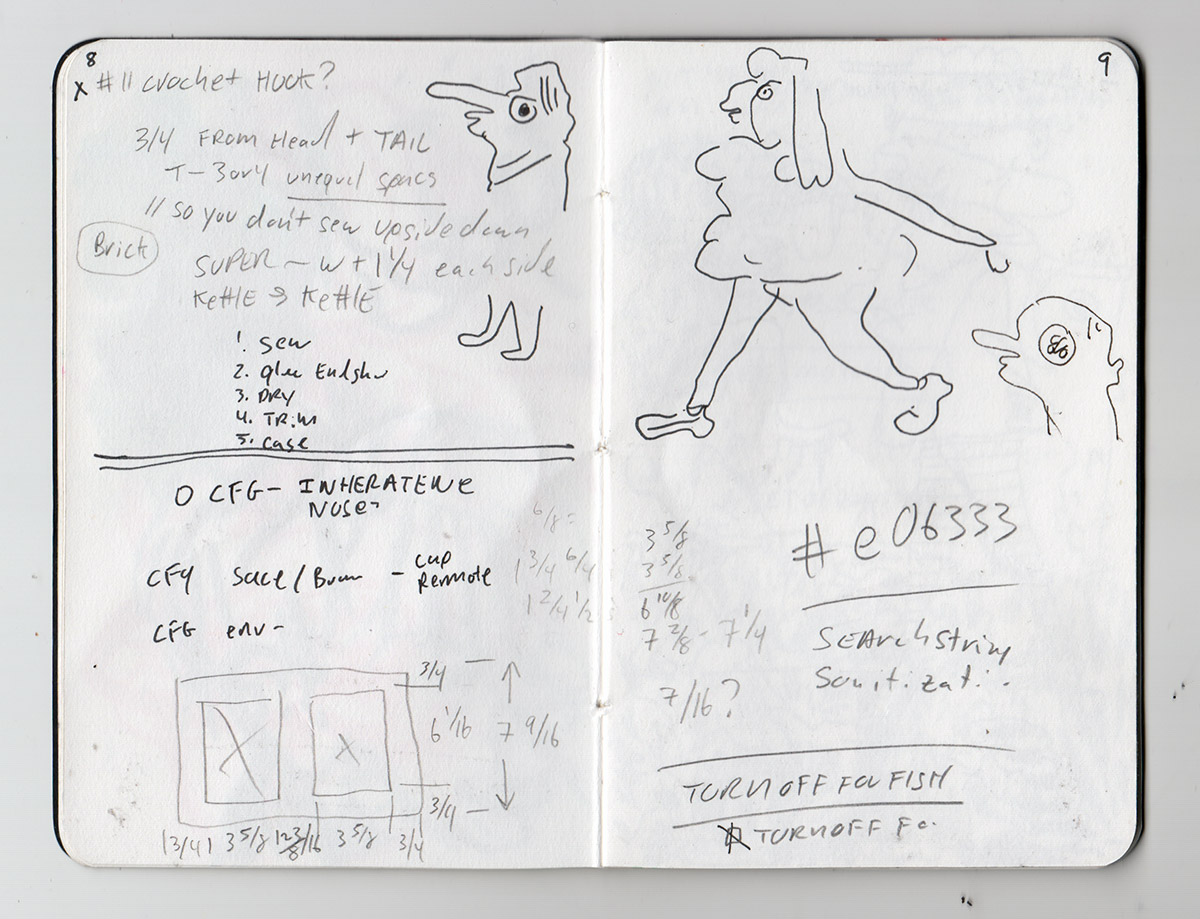 8
x #11 crochet HOOK?
3/4 FROM Head + TAIL
T- 3or4 unequel spacs
// so you don't sew upside down
Brick
SUPER ~ W + 1 1/4 each side
KettlE → KettlE
1. Sew
2. glue
3. DRY
4. TRim
5. case
O CFG - INHERATENCE
CFG env -
6/8 =
1 3/4 6/4
1 2/4 1/2
3/4
6 1/16
7 9/16
3/4
3 5/8
3 5/8
3/4
9
3 5/8
3 5/8
6 10/8
7 2/8 - 7 1/4
7/16?
#e06333
SEARch string
Sanitizati
TURN OFF FOR FISH
TURN OFF Fo.